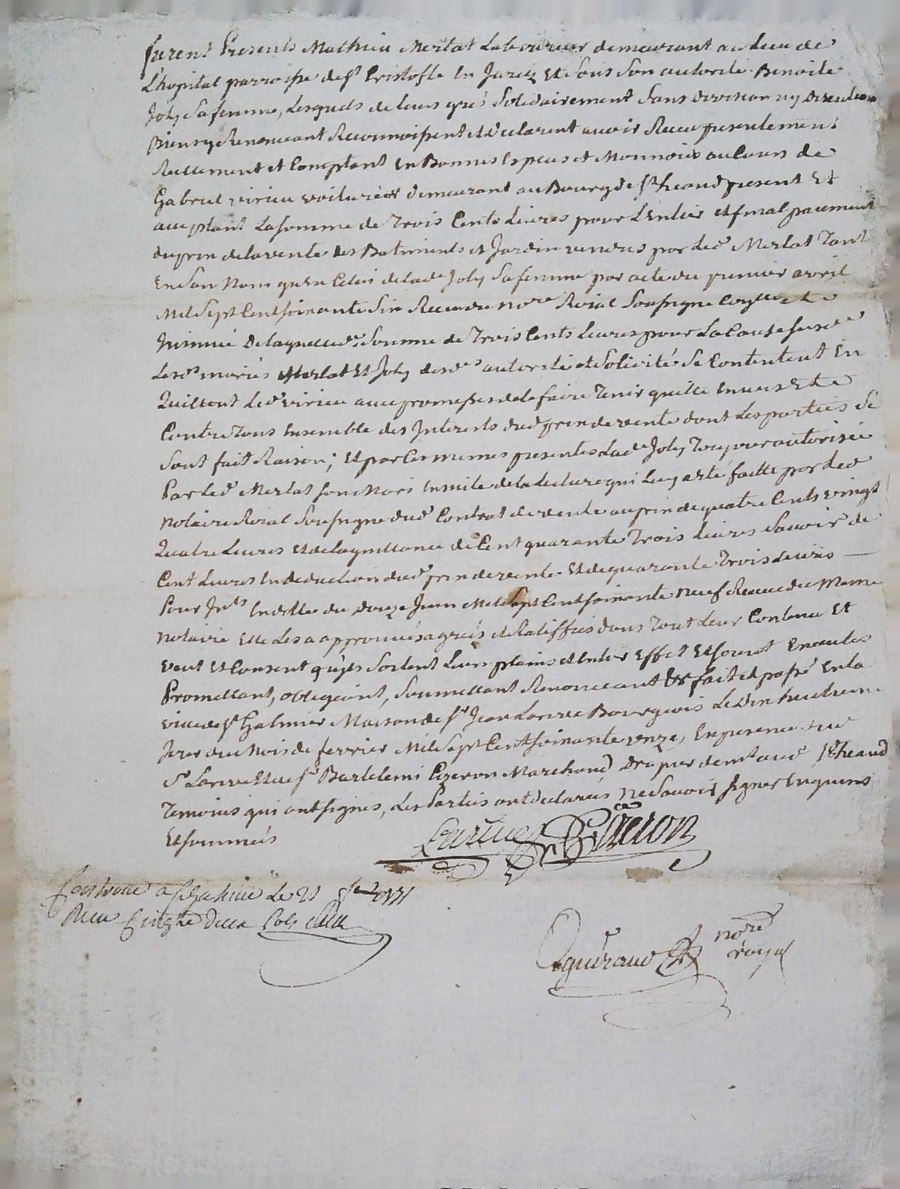 furent Presents Mathieu Merlat Laboureur demeurant au lieu de
L'hopital parroisse de st Cristofle En Jarez Et sous son autorité Benoite
Joly sa femme, Lesquels de leurs grés solidairement sans division ny Discution
Bien y Renoncant Reconnoissent et déclarent avoir Receu presentement
Reellement et Comptant En Bonnes Especes et Monnoies au Cours de
Gabriel virieu voiturier demeurant au Bourg de st heand present Et
acceptant La somme de Trois Cents Livres pour L'Entier et final paiement
du prix de la vente des Batiments et Jardin vendus par led Merlat Tant
En son Nom qu'en Celui de lad Joly sa femme par acte du premier avril
Mil Sept Cent soixante Six Receu du nore Roial soussigne
Insinué De laquelle de somme de Trois Cents Livres pour La Cause susde
Les ds mariés Merlat Et Joly desds autorité et solicités se Contentent En
Quittent Led virieu avec promesse de le faire Tenir quitte Envers Et
Contre Tous Ensemble des Interets dud prix de vente dont Les parties se
sont fait Raison; Et par Ces memes presentes Lad Joly Toujour autorisée
Par led Merlat son Mari Ensuite de la Lecture qui Luy a ete faitte par led
Notaire Roial soussigne dud Contrat de vente au prix de quatre Cents vingt
Quatre Livres Et de la quittance de Cent quarante Trois Livres savoir de
Cent Livres En deduction dud prix de vente Et de quarante Trois Livres
Pour Ints Icelle du Douze Juin Mil Sept Cent soixante neuf Receue du Meme
Notaire Elle Les a approuvés agreés et Ratiffiés dans Tout Leur Contenu Et
veut Et Consent qu'ils sortent Leur plains et Entier Effet Et soient Executés
Promettant, obligeant, soumettant Renoncant &c fait et passé En la
ville de st Galmier Maison de sr Jean Larive Bourgeois Le vint huitieme
Jour du Mois de fevrier Mil Sept Cent soixante onze, En presence dud
sr Larive Et de sr Bartelemi Marchand Drapier demt aud st heand
Temoins qui ont signés, Les Parties ont declarés Ne Savoir signer Enquises
Et sommés
Larive
nore
Royal